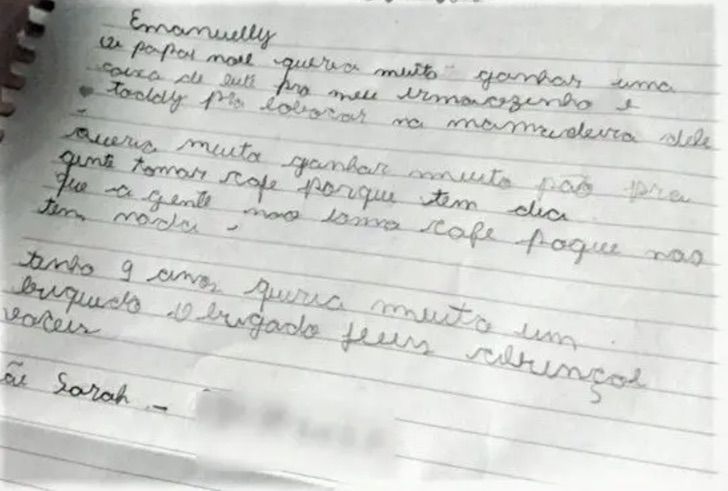 Emanuelly
oe papai noel queria muito ganhar uma
caixa de leite pro meu irmaozinho e
toddy pra colocar na mamadeira dele
queria muito ganhar muito pão pra
gente tomar cafe porque tem dia
que a gente nao toma cafe poque nao
tem nada.
tenho 9 anos queria muito um
briquedo obrigado feliz
voceis
Sarah -